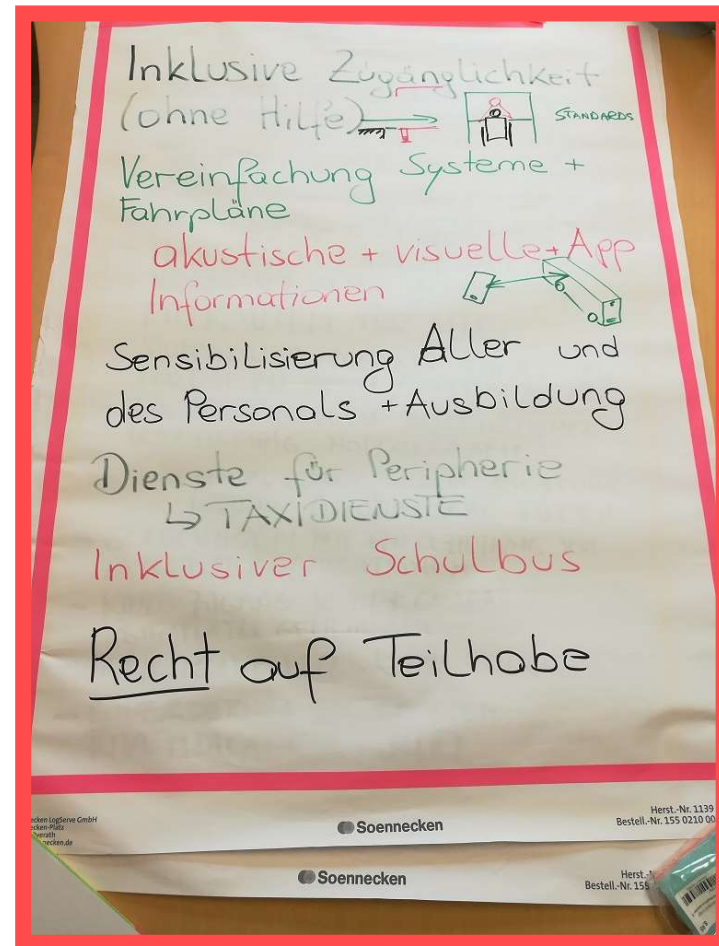 Inklusive Zugänglichkeit
(ohne Hilfe)
STANDARDS
Vereinfachung Systeme +
Fahrpläne
akustische + visuelle + App
Informationen
Sensibilisierung Aller und
des Personals + Ausbildung
Dienste für Peripherie
↳ TAXIDIENSTE
Inklusiver Schulbus
Recht auf Teilhabe
LogServe GmbH
Soennecken
Herst.-Nr. 1139
Bestell.-Nr. 155 0210 00
Soennecken
Bestell.-Nr. 155